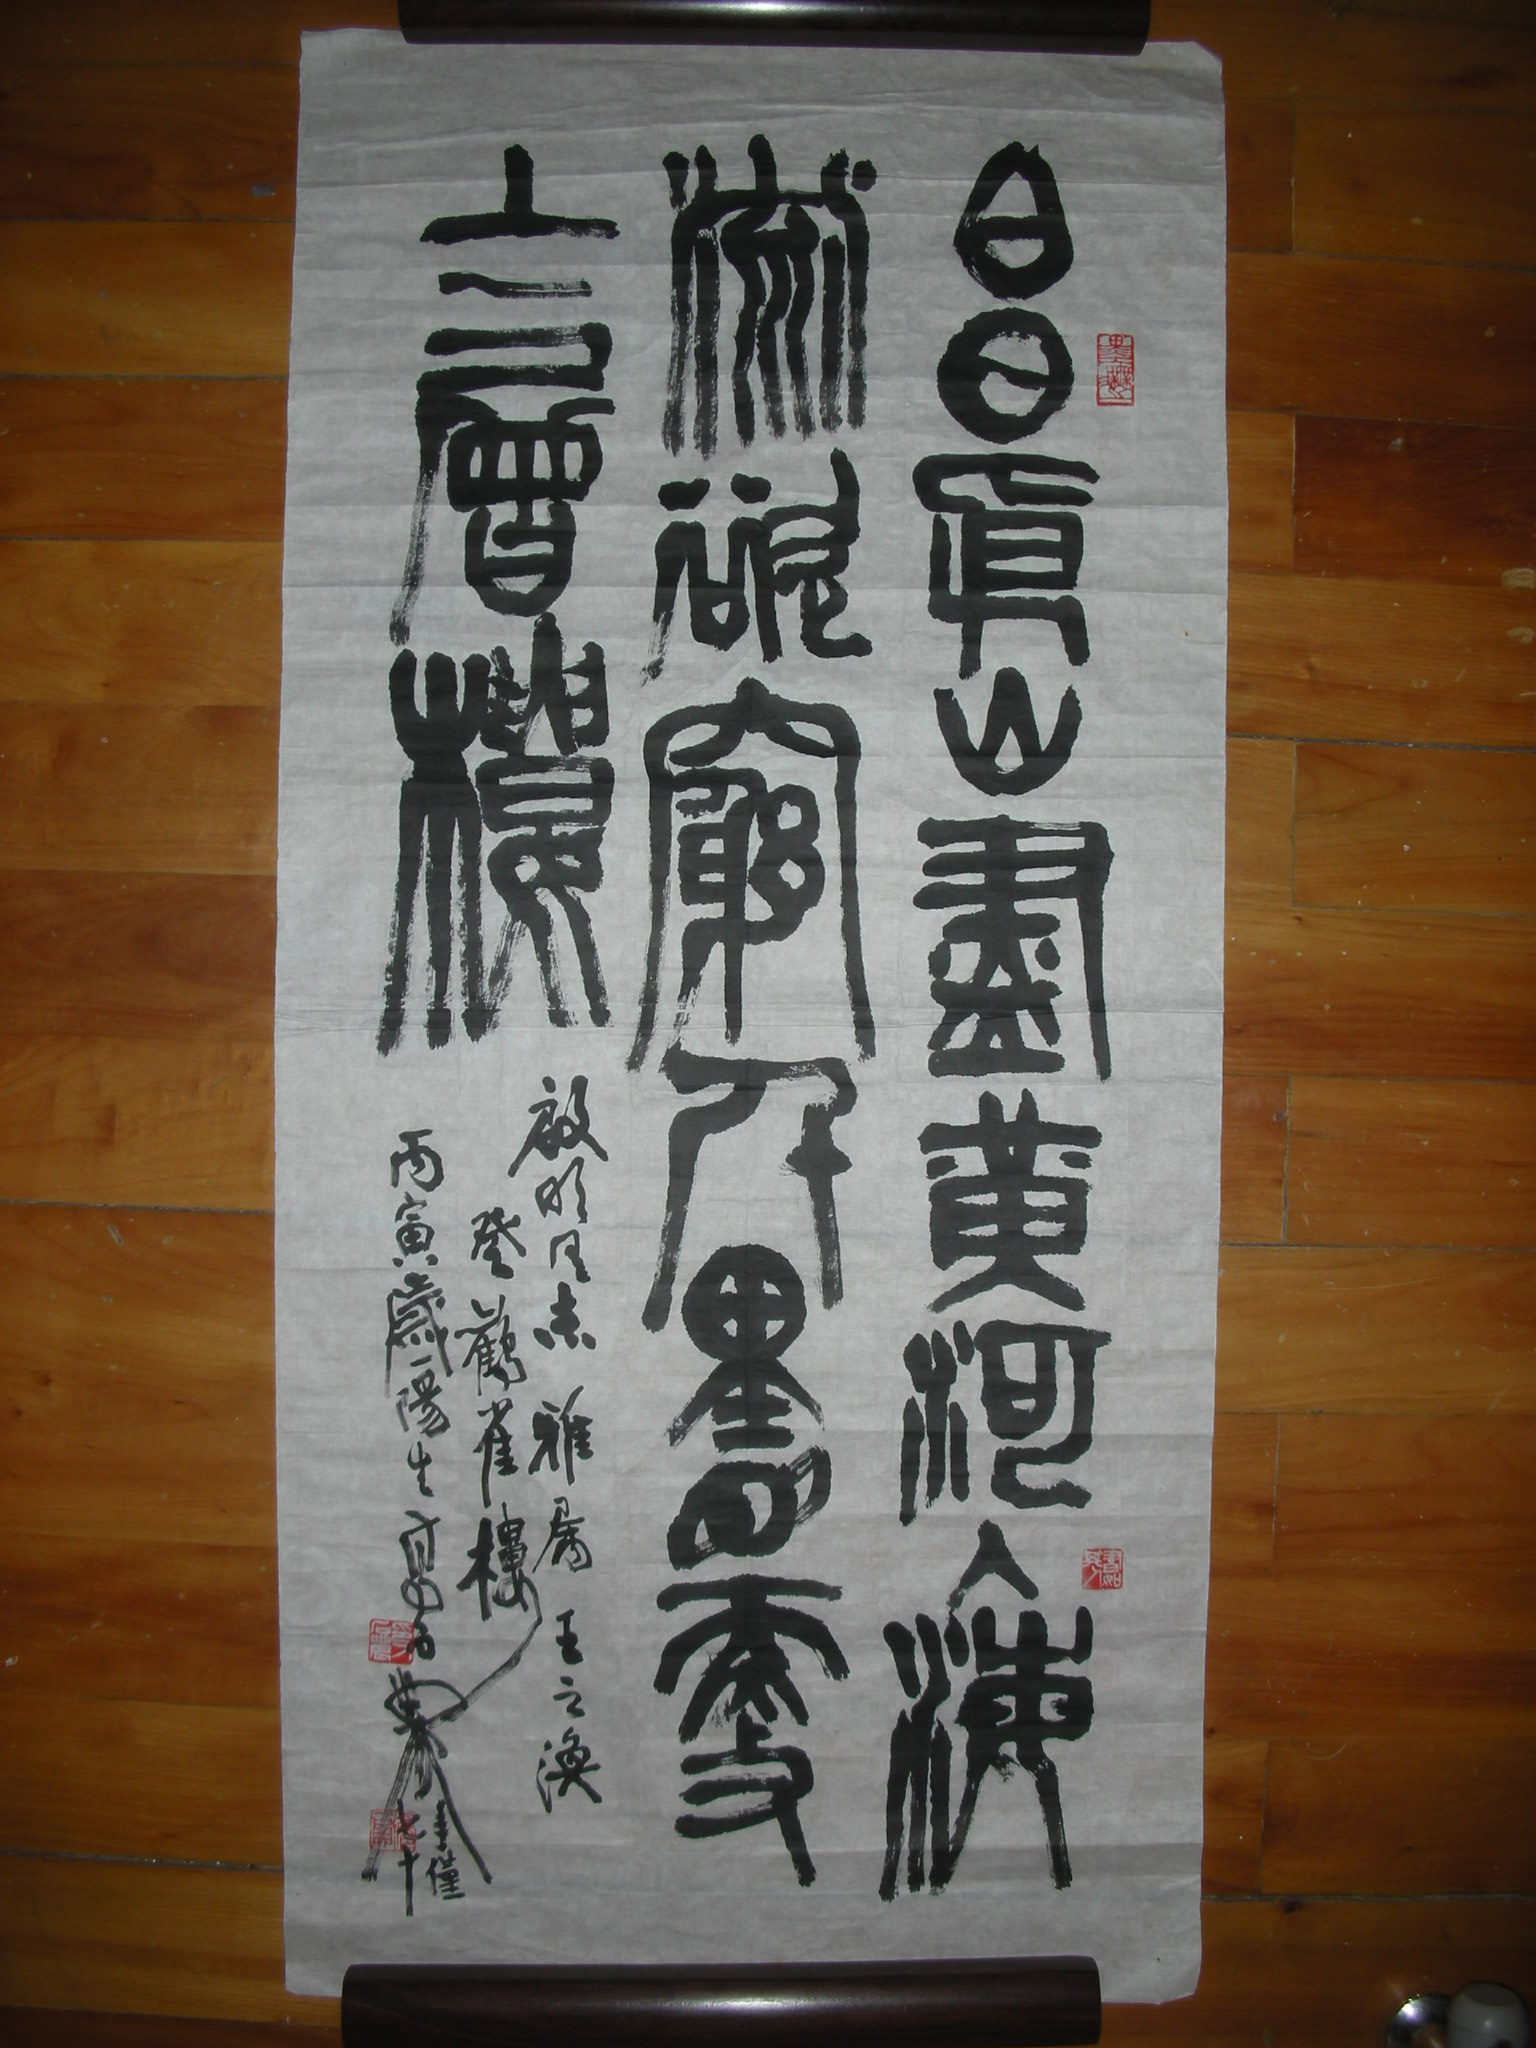 白日依山盡黃河入海
流欲窮千里目更
上一層樓
啟明同志 雅属 王之渙
登鶴雀樓
丙寅歲一陽生月
七十